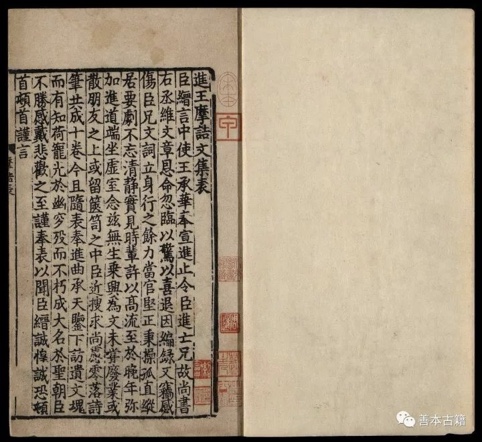 進王摩詰文集表
臣縉言中使王承華奉宣進止令臣進亡兄故尚書
右丞維文章恩命忽臨以驚以喜退因編錄又竊感
傷臣兄文詞立身行之餘力當官堅正秉操孤直縱
居要劇不忘清靜實見時輩許以高流至於晚年弥
加進道端坐虛室念兹無生乘興為文未嘗廢業或
散朋友之上或留篋笥之中臣近搜求尚慮零落詩
筆共成十卷今且隨表奉進曲承天鑒下訪遺文魂
而有知荷寵光於幽穸歿而不朽成大名於聖朝臣
不勝感戴悲歡之至謹奉表以聞臣縉誠惶誠恐頓
首頓首謹言
善本古籍